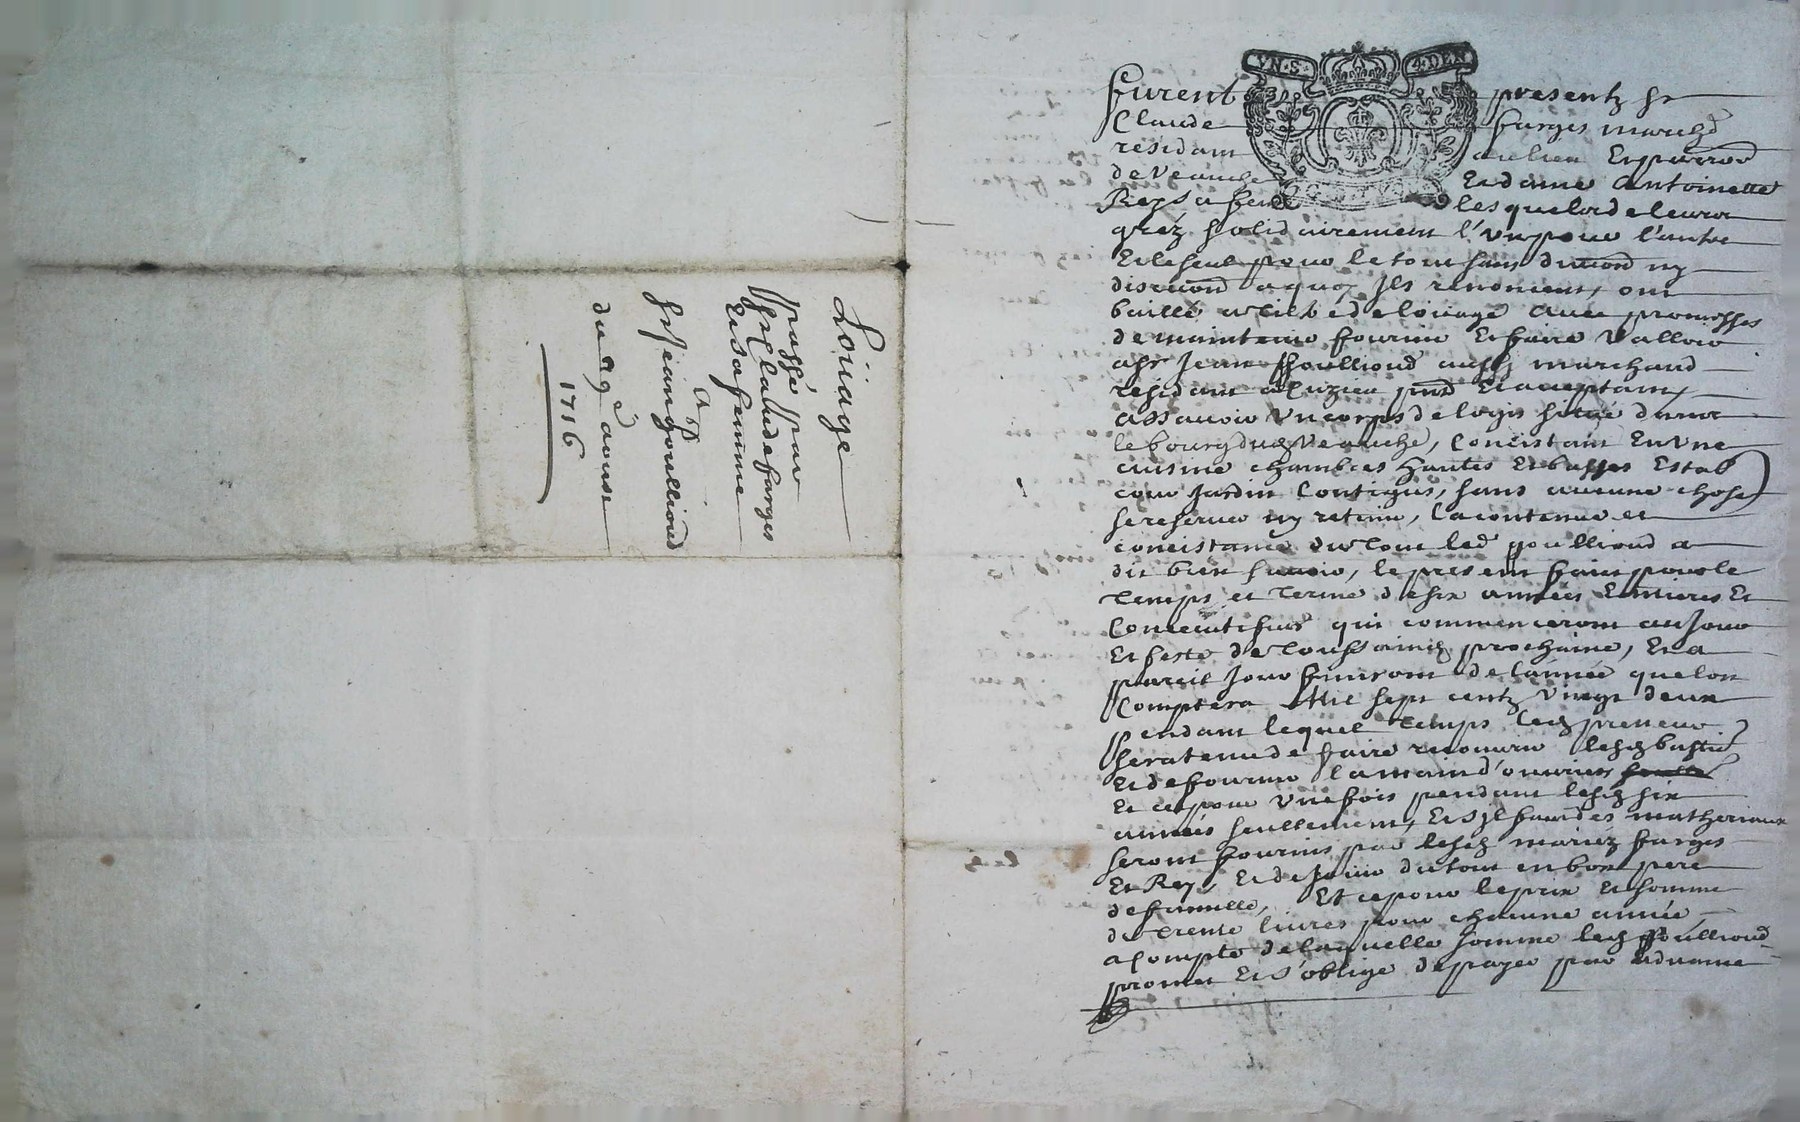 Loüage
passé par
Sr Claude farges
Et sa femme
A
Sr Jean goullioud
du 29e aoust
1716
VN·S· 4·DEN
furent presentz Sr
Claude farges march^d
residant au lieu Et parroi
de Veauche Et dame Antoinette
Rey sa fem lesquels de leurs
gréz solidairement l'un pour l'autre
Et le seul pour le tout sans division ny
discution a quoy Ils renoncent, ont
baillé a tiltre de loüage avec promesses
de maintenir fournir Et faire Valloir
a Sr Jean goullioud aussy marchand
residant a Cuzieu pnt Et acceptant,
assavoir Un corps de logis situé dans
le bourg dud Veauche, Concistant En Une
cuisine chambres hautes Et basses Estab
cour Jardin Contigus, sans aucune chose
se reserver ny retenir, la contenue et
concistance du tout led goullioud a
dit bien sçavoir, le present fait pour le
temps et terme de six années Entieres Et
Consecutifves qui commenceront au Jour
Et feste de Toussainctz prochaine, Et a
pareil Jour finiront de l'année que lon
Comptera Mil sept centz Vingt deux
pendant lequel temps led preneur
sera tenu de faire recouvrir lesd bastie
Et de fournir la main d'ouvriers
Et ce pour Une fois pendant lesd six
années seullement, Et s'il faut des matheriaux
seront fournis par lesd mariéz farges
Et Rey, Et de Jouir du tout en bon pere
de famille, Et ce pour le prix Et somme
de trente livres pour chacune année,
a Compte de laquelle somme led goullioud
promet Et s'oblige de payer par advance